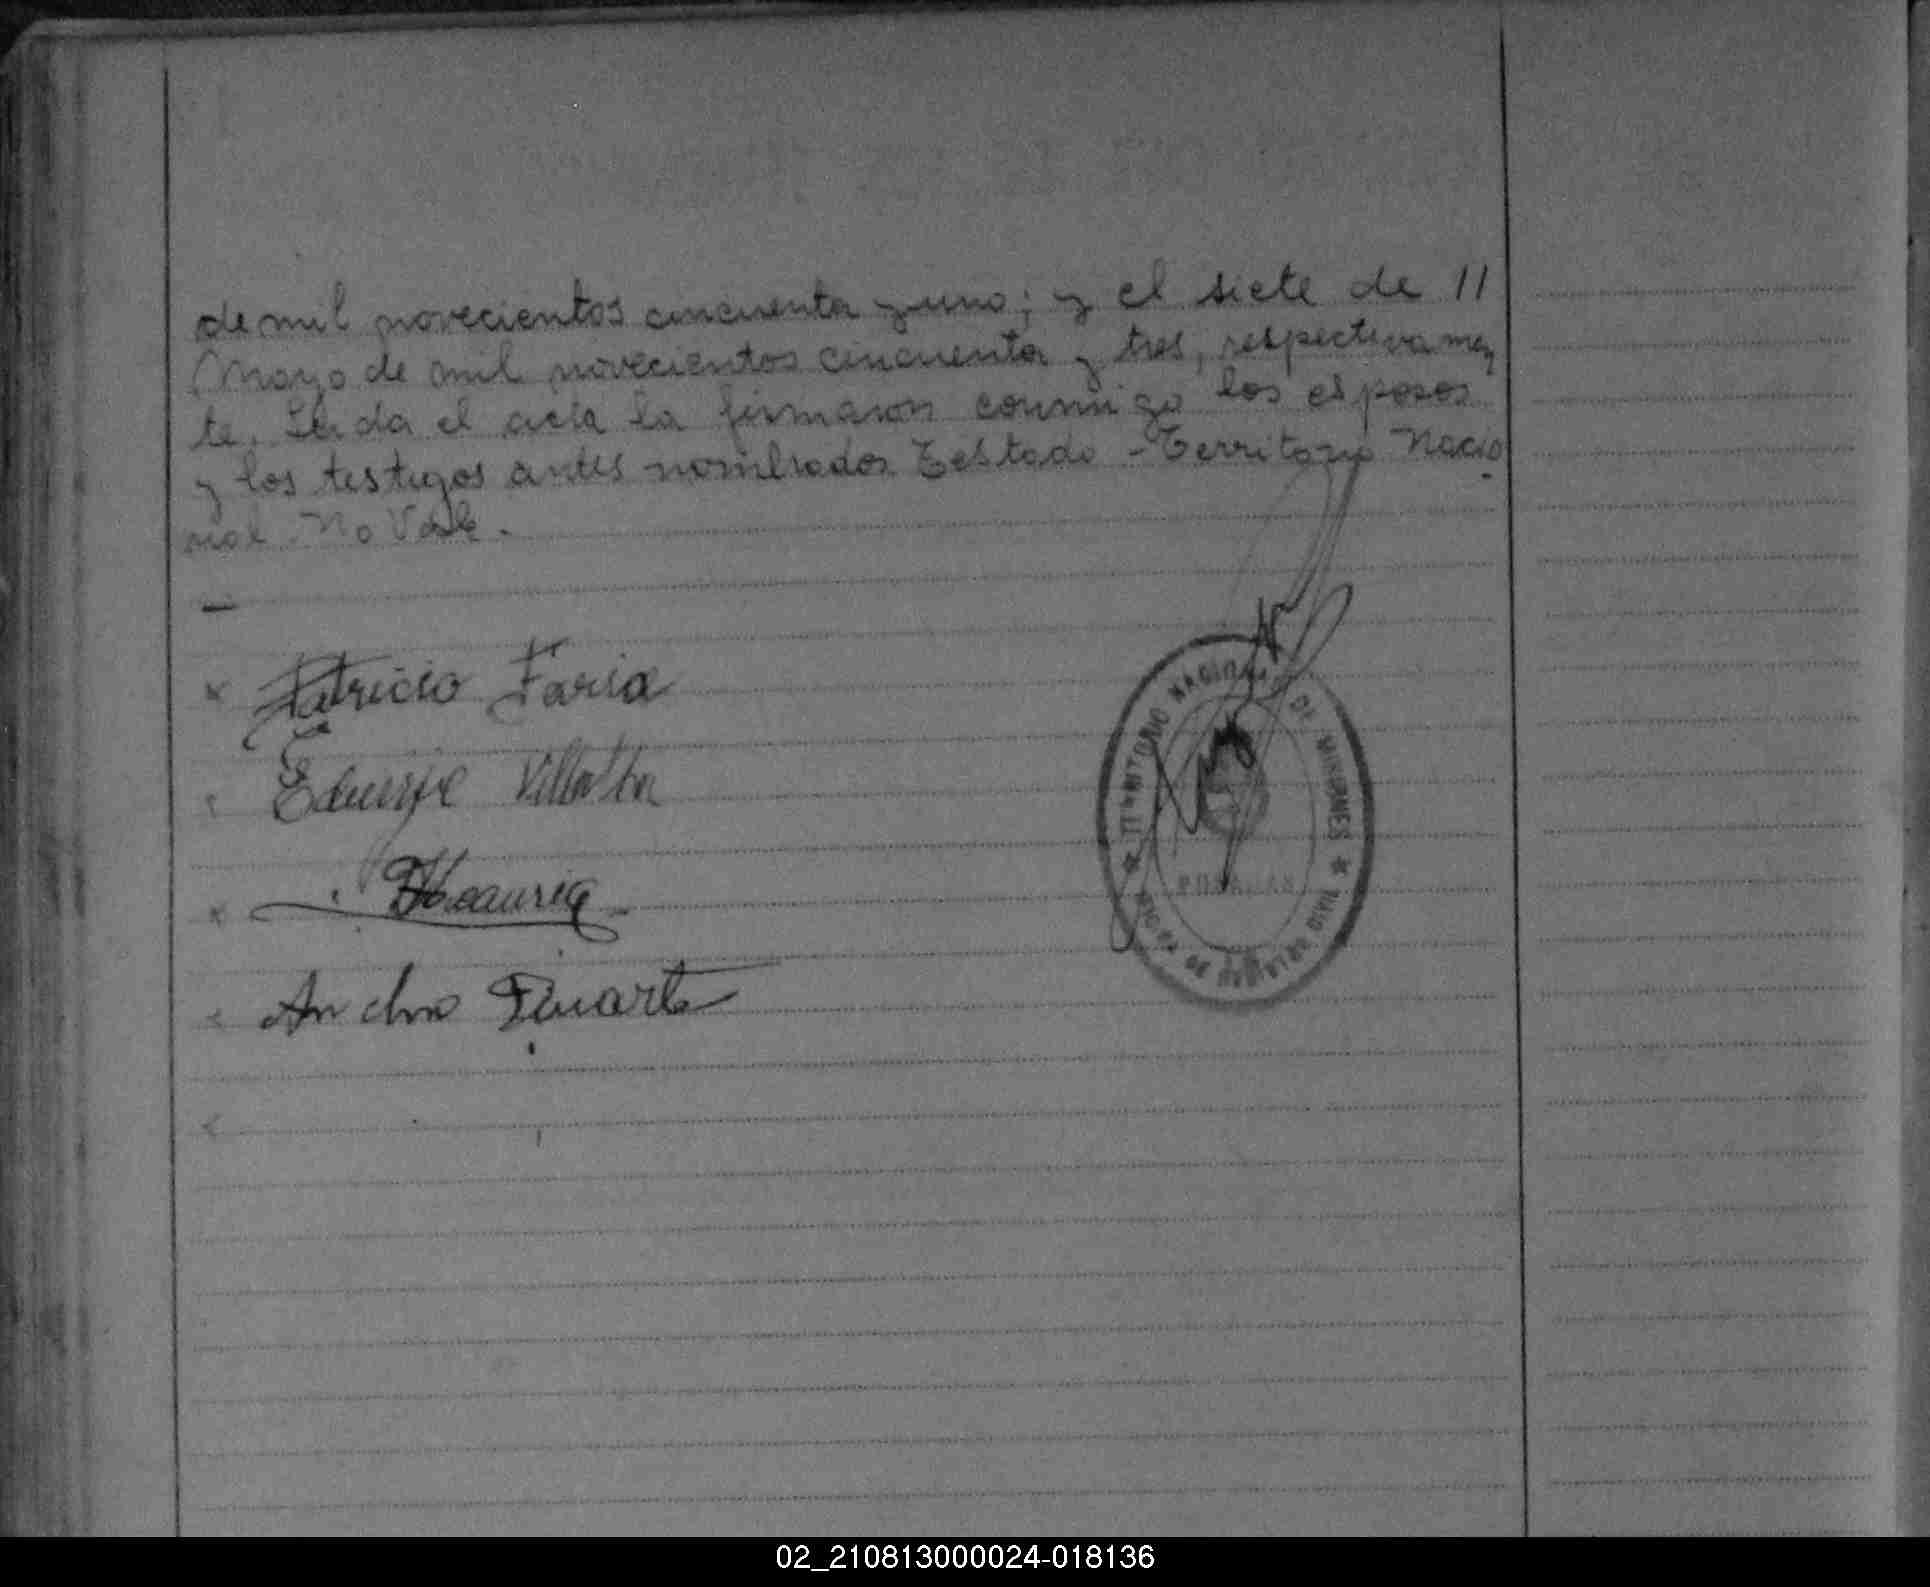 de mil novecientos cincuenta y uno; y el siete de //
Mayo de mil novecientos cincuenta y tres, respectivamen
te. Leida el acta la firmaron conmigo los esposos
y los testigos antes nombrados Testado - Territorio Nacio
nal - No Vale.
Patricio Faria
Eduvije Villalba
Duarte
TERRITORIO NACIONAL DE MISIONES
POSADAS
02_210813000024-018136